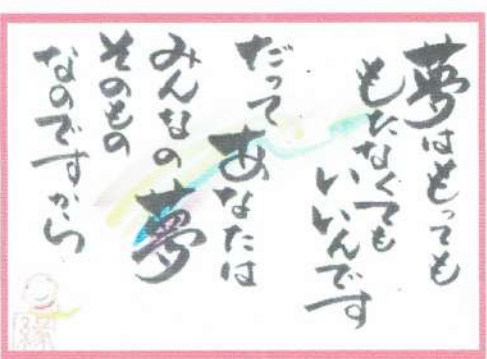 夢はもっても
もたなくても
いいんです
だって
あなたは
みんなの夢
そのもの
なのですから